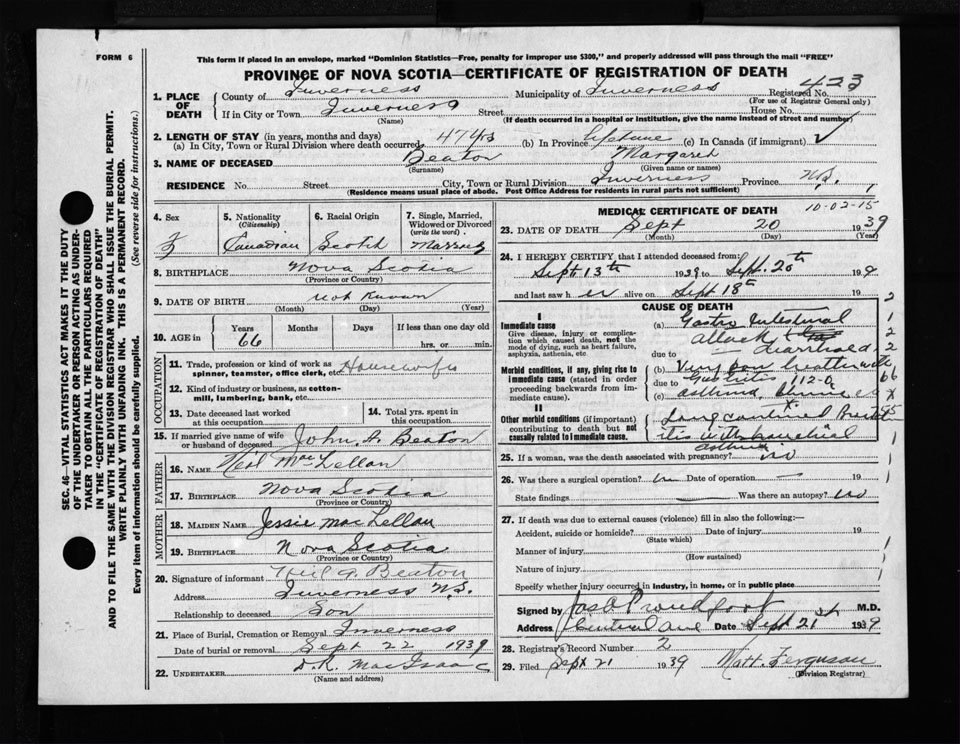 FORM 6
This form if placed in an envelope, marked "Dominion Statistics—Free, penalty for improper use $300," and properly addressed will pass through the mail "FREE"
PROVINCE OF NOVA SCOTIA—CERTIFICATE OF REGISTRATION OF DEATH
SEC. 46—VITAL STATISTICS ACT MAKES IT THE DUTY
OF THE UNDERTAKER OR PERSON ACTING AS UNDER-
TAKER TO OBTAIN ALL THE PARTICULARS REQUIRED
IN THE "CERTIFICATE OF REGISTRATION OF DEATH"
AND TO FILE THE SAME WITH THE DIVISION REGISTRAR WHO SHALL ISSUE THE BURIAL PERMIT.
WRITE PLAINLY WITH UNFADING INK. THIS IS A PERMANENT RECORD.
Every item of information should be carefully supplied. (See reverse side for instructions.)
1. PLACE OF DEATH
County of Inverness Municipality of Inverness Registered No. 423
(For use of Registrar General only)
If in City or Town Inverness Street House No.
(Name) (If death occurred in a hospital or institution, give the name instead of street and number)
2. LENGTH OF STAY (in years, months and days)
(a) In City, Town or Rural Division where death occurred 47 yrs (b) In Province Lifetime (c) In Canada (if immigrant) ✓
3. NAME OF DECEASED Beaton Margaret
(Surname) (Given name or names)
RESIDENCE No. Street City, Town or Rural Division Inverness Province N.S.
(Residence means usual place of abode. Post Office Address for residents in rural parts not sufficient)
4. Sex
F
5. Nationality
(Citizenship)
Canadian
6. Racial Origin
Scotch
7. Single, Married, Widowed or Divorced
(write the word)
Married
8. BIRTHPLACE Nova Scotia
(Province or Country)
9. DATE OF BIRTH not known
(Month) (Day) (Year)
10. AGE in
Years Months Days If less than one day old
66 hrs. or min.
OCCUPATION
11. Trade, profession or kind of work as Housewife
spinner, teamster, office clerk, etc.
12. Kind of industry or business, as cotton-
mill, lumbering, bank, etc.
13. Date deceased last worked
at this occupation
14. Total yrs. spent in
this occupation
15. If married give name of wife
or husband of deceased John A. Beaton
FATHER
16. NAME Neil MacLellan
17. BIRTHPLACE Nova Scotia
(Province or Country)
MOTHER
18. MAIDEN NAME Jessie MacLellan
19. BIRTHPLACE Nova Scotia
(Province or Country)
20. Signature of informant Neil A. Beaton
Address Inverness N.S.
Relationship to deceased Son
21. Place of Burial, Cremation or Removal Inverness
Date of burial or removal Sept 22 1939
22. UNDERTAKER D.R. MacIsaac
(Name and address)
MEDICAL CERTIFICATE OF DEATH 10-02-15
23. DATE OF DEATH Sept 20 1939
(Month) (Day) (Year)
24. I HEREBY CERTIFY that I attended deceased from:
Sept 13th 1939 to Sept. 20th 1939
and last saw h er alive on Sept 18th 19
CAUSE OF DEATH
I
Immediate cause
Give disease, injury or complica-
tion which caused death, not the
mode of dying, such as heart failure,
asphyxia, asthenia, etc.
(a) Gastro Intestinal
attack
diarrhoea
due to
Morbid conditions, if any, giving rise to
immediate cause (stated in order
proceeding backwards from im-
mediate cause).
(b) Very
due to 112-a
(c) asthma
II
Other morbid conditions (if important)
contributing to death but not
causally related to immediate cause.
Long continued
itis with bronchial
asthma
25. If a woman, was the death associated with pregnancy? no
26. Was there a surgical operation? no Date of operation
State findings Was there an autopsy? no
27. If death was due to external causes (violence) fill in also the following:—
Accident, suicide or homicide? Date of injury 19
(State which)
Manner of injury
(How sustained)
Nature of injury
Specify whether injury occurred in industry, in home, or in public place
Signed by Jas A Proudfoot M.D.
Address Date Sept 21st 1939
28. Registrar's Record Number 2
29. Filed Sept 21 1939 Matt. Ferguson
(Division Registrar)